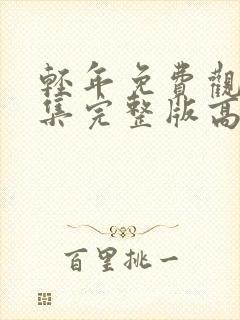 輕年免費觀
集完整版高
百里挑一